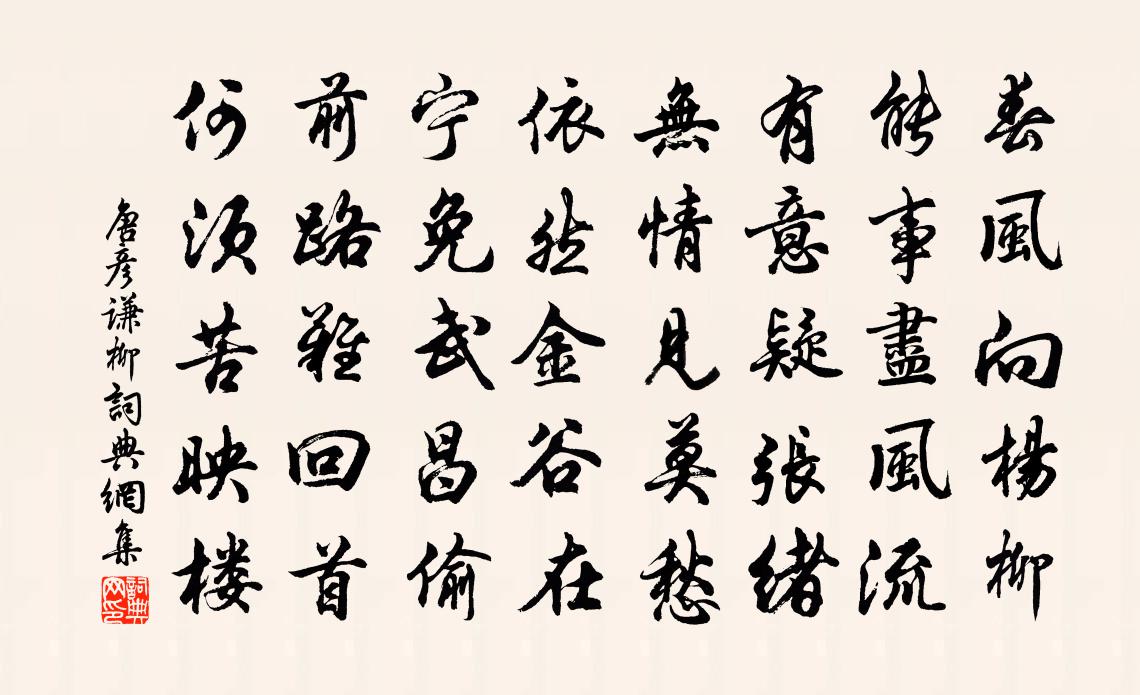 春風向楊柳
能事盡風流
有意疑張緒
無情見莫愁
依然金谷在
宁免武昌偷
前路難回首
何須苦映楼
唐彦谦柳詞典網集
詞典网印